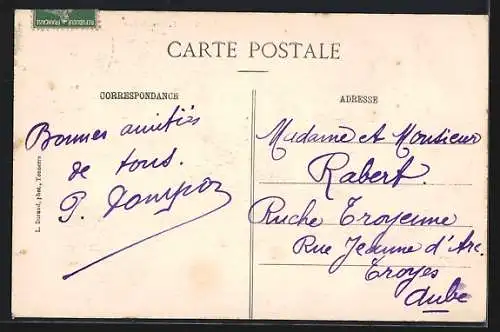 REPUBLIQUE FRANÇAISE
CARTE POSTALE
CORRESPONDANCE
ADRESSE
Bonnes amitiés
de tous.
P.
Madame et Monsieur
Rabert.
Ruche Troyenne
Rue Jeanne d'Arc.
Troyes
Aube
L. Durand, phot., Tonnerre